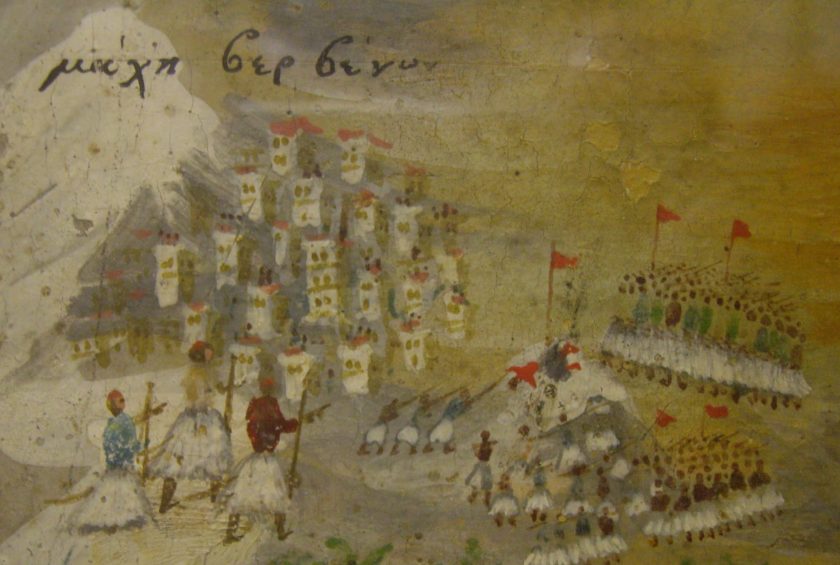 μάχη βερβένων